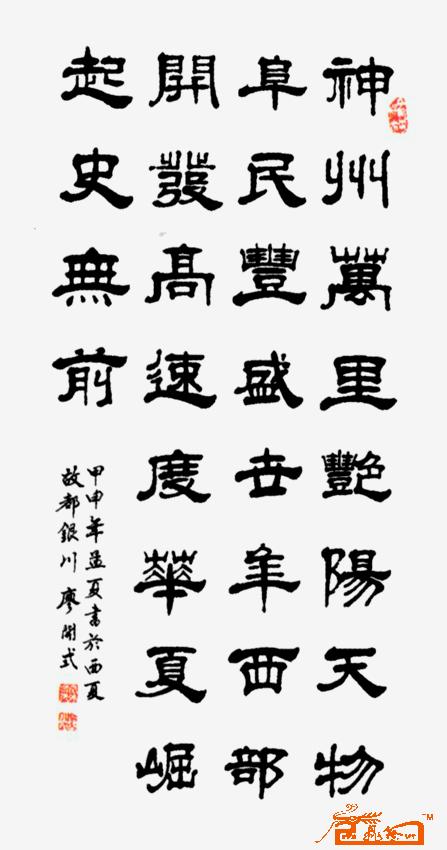 神州萬里艷陽天物
阜民豐盛世年西部
開發高速度華夏崛
起史無前
甲申年孟夏書於西夏
故都銀川 廖開式
TM